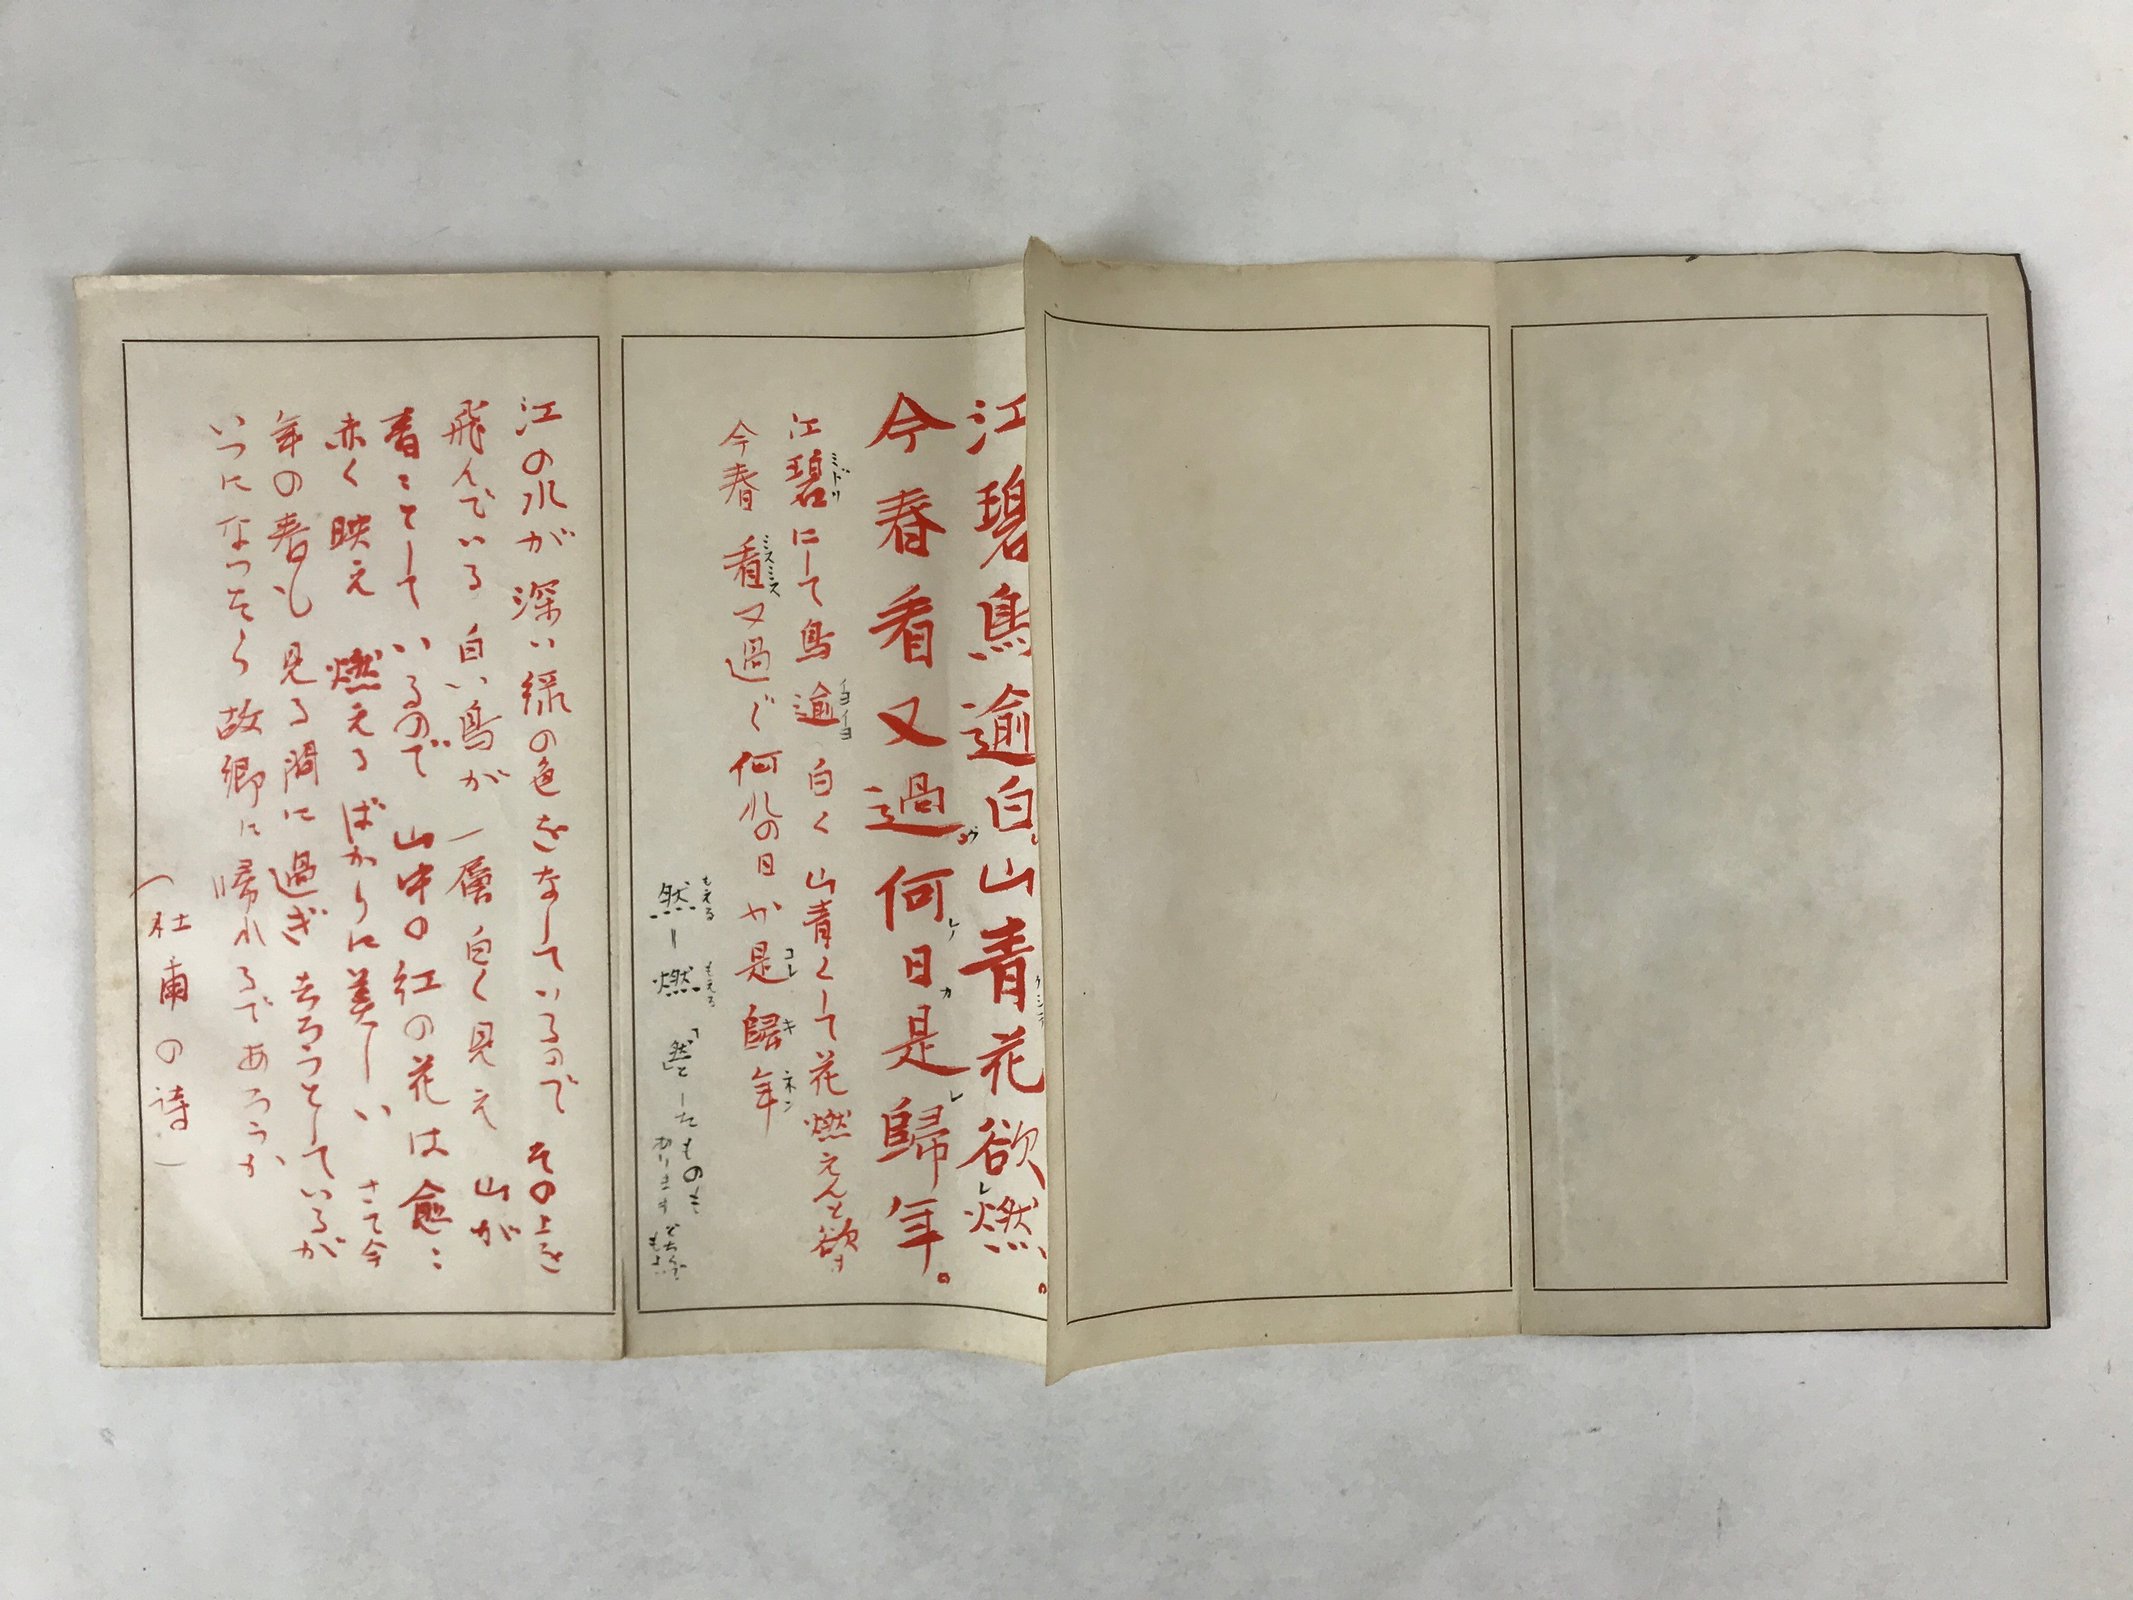 江碧鳥逾白山青花欲燃。
今春看又過何日是歸年。
江碧にして鳥逾白く山青くして花燃えんと欲す
今春看又過ぐ何れの日か是歸年
然―燃「然」としたものも
あります
江の水が深い緑の色をなしているのでその上を
飛んでいる白い鳥が一層白く見え山が
青々としているので山中の紅の花は愈々
赤く映え燃えるばかりに美しいさて今
年の春も見る間に過ぎ去ろうとしているが
いつになったら故郷に帰れるであろうか
（杜甫の詩）